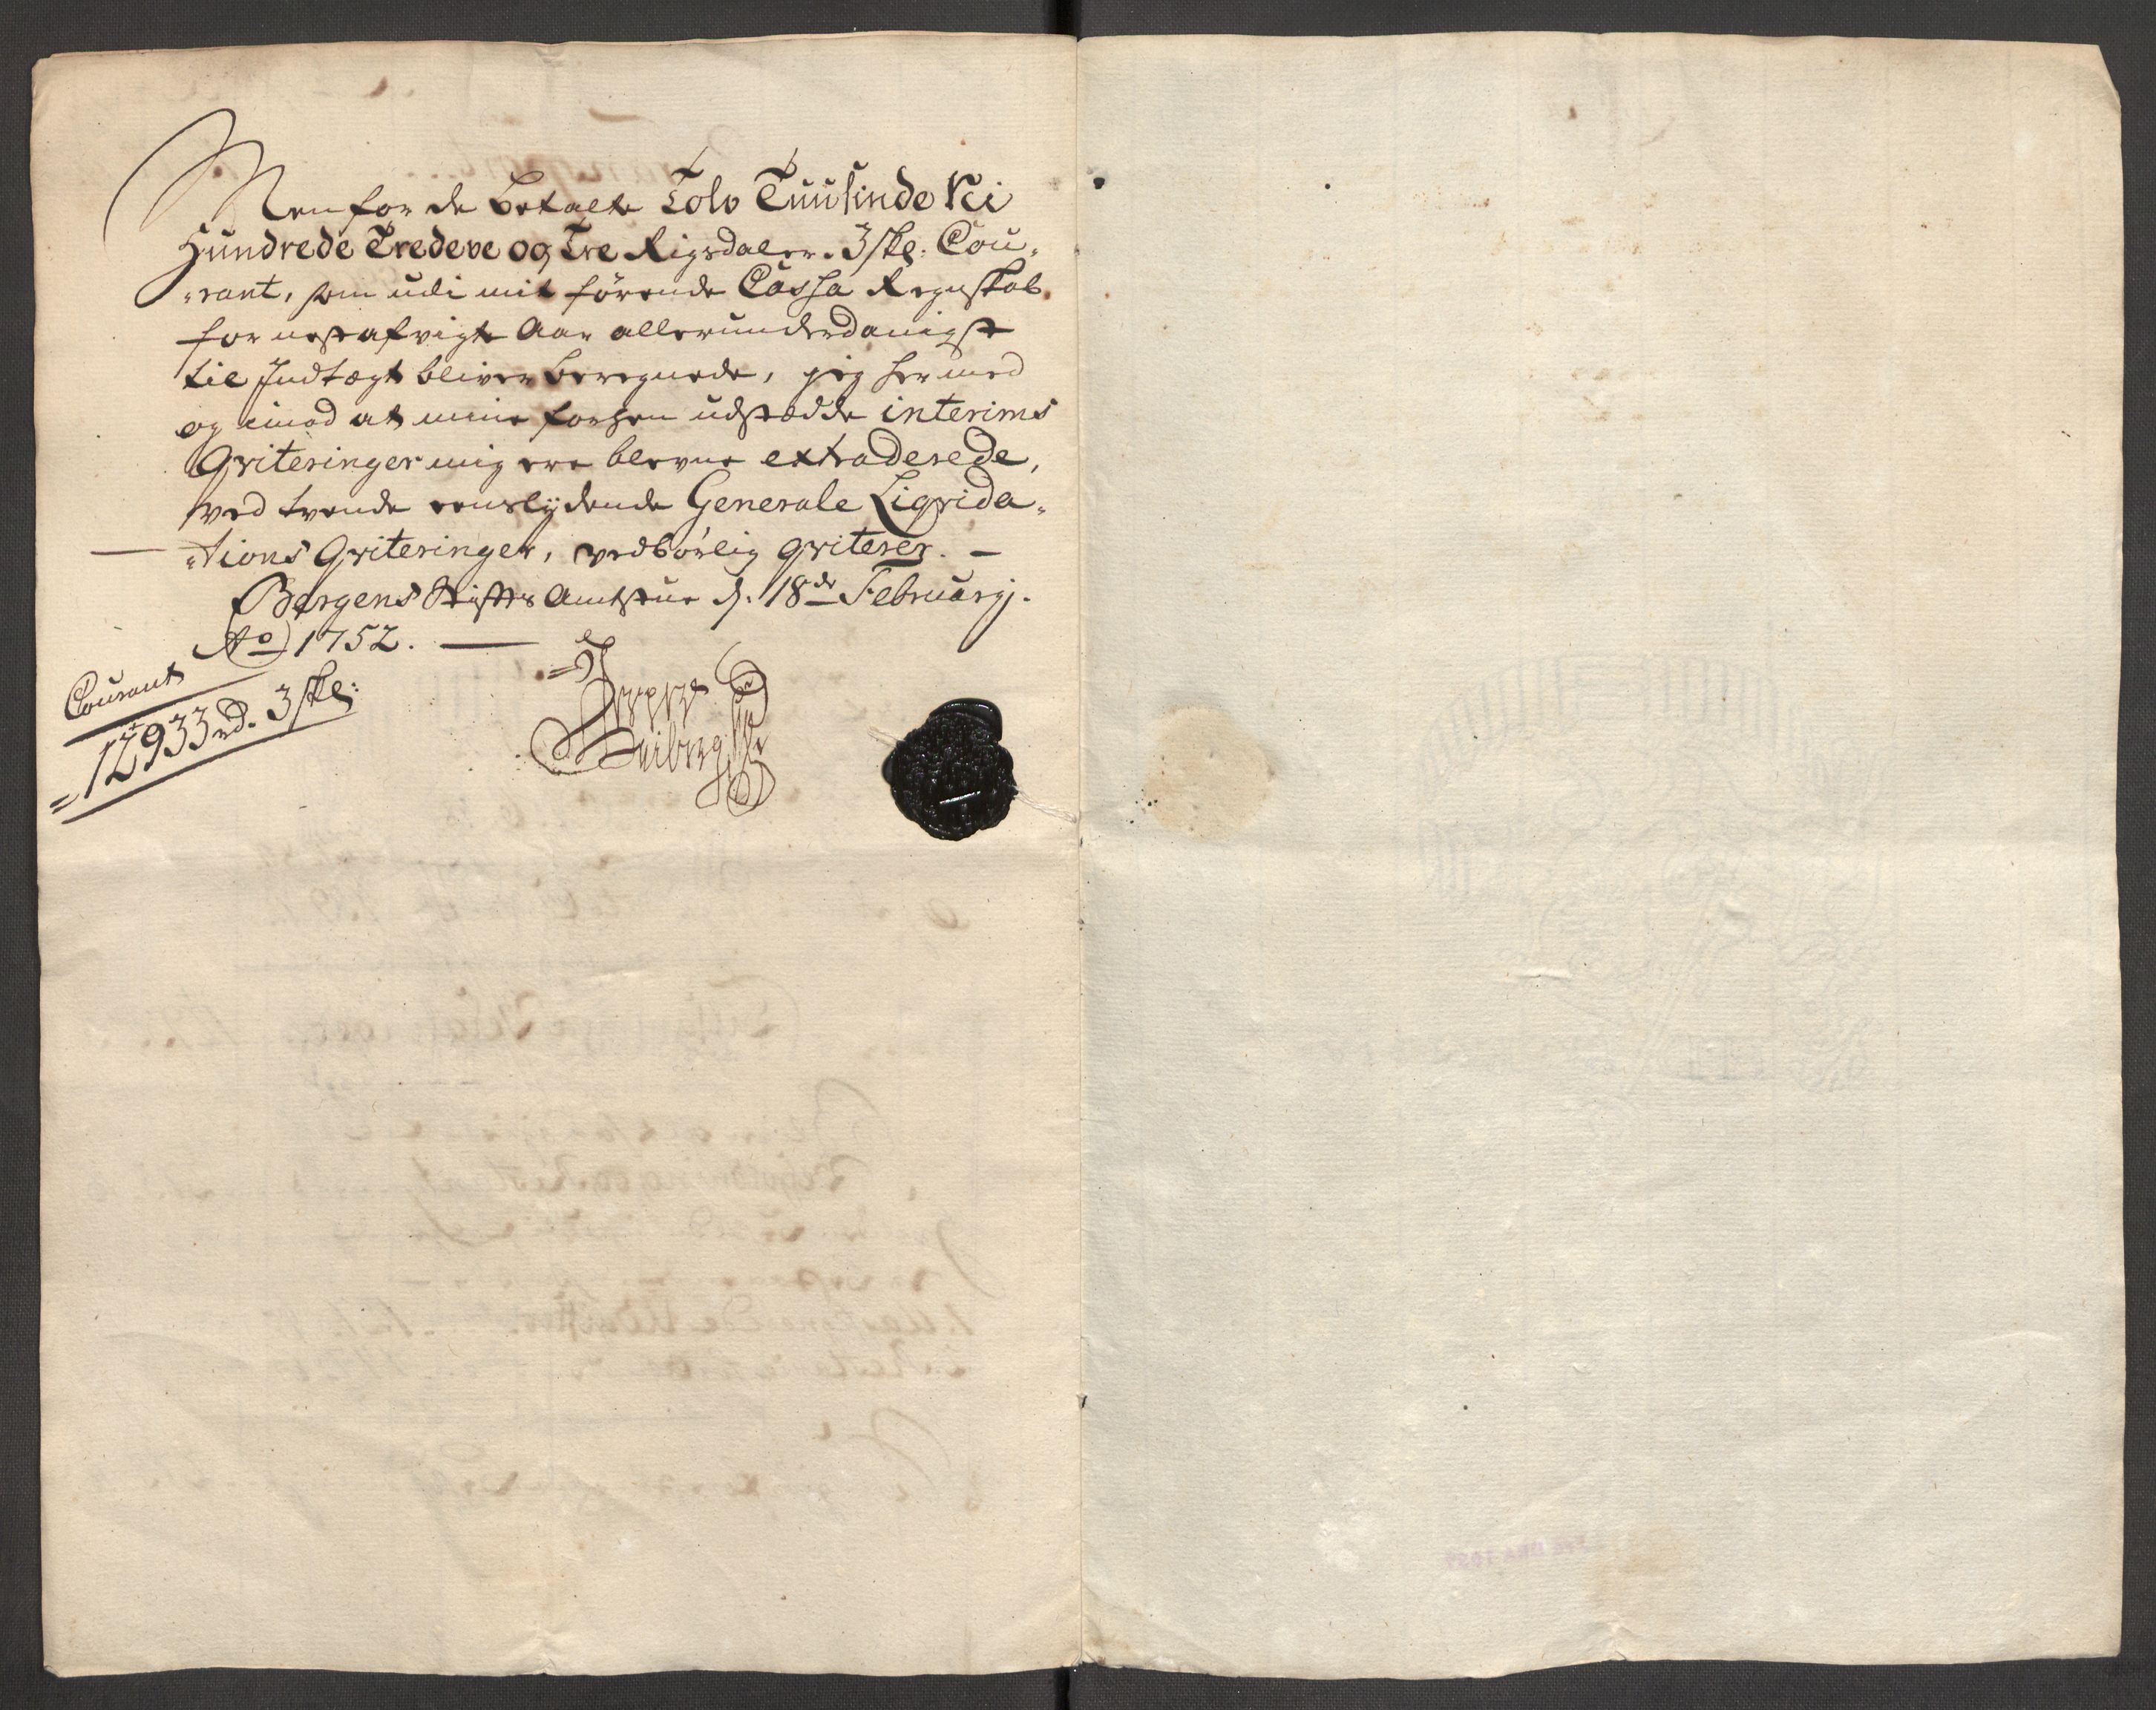 Men for de betalte Tolv Tuusinde Ni
Hundrede Tredeve og Tre Rigsdaler. 3 skl: Cou-
-rant, som udi mit førende Cassa Regnskab
for nestafvigte Aar allerunderdanigst
til Indtægt bliver beregnede, jeg hermed
og imod at mine forhen udstædde interims
Qviteringer mig ere blevne extraderede,
ved tvende eenslÿdende Generale Liqvida-
-tions Qviteringer, vedbörlig qviterer. —
Bergens Stifts Amtstue d. 18de Februarij.
Ao 1752. —
Courant
= 12933 rd. 3 skl: